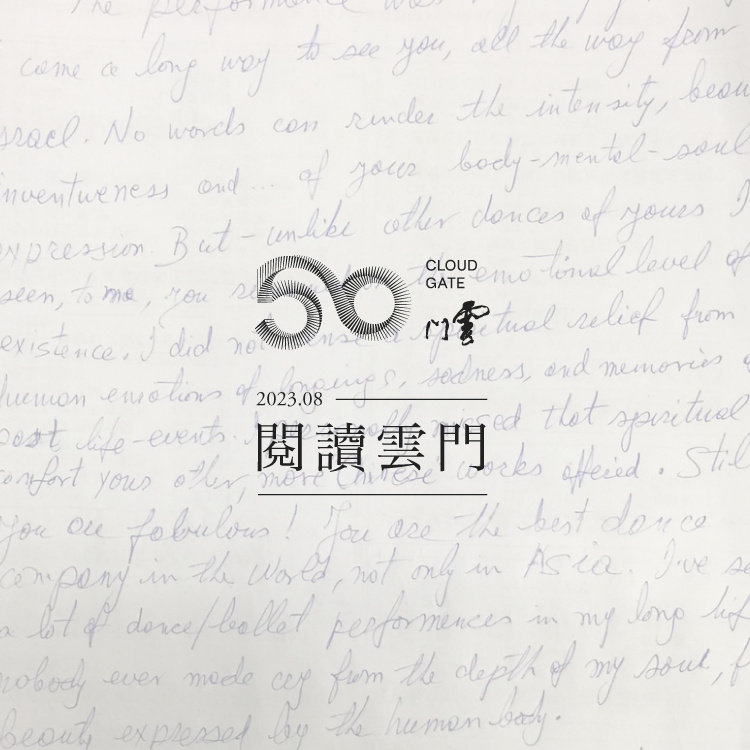 The performance was
I come a long way to see you, all the way from
Israel. No words can render the intensity, beau
inventiveness and... of your body-mental-soul
expression. But - unlike other dances of yours I
seen, to me, you emotional level of
existence. I did not sense a spiritual relief from
human emotions of longings, sadness, and memories of
past life-events. missed that spiritual
comfort your other, more Chinese works offered. Still
You are fabulous! You are the best dance
company in the world, not only in Asia. I've se
a lot of dance/ballet performances in my long lif
nobody ever made cry from the depth of my soul, f
beauty expressed by the human body.
50
CLOUD
GATE
雲門
2023.08
閱讀雲門